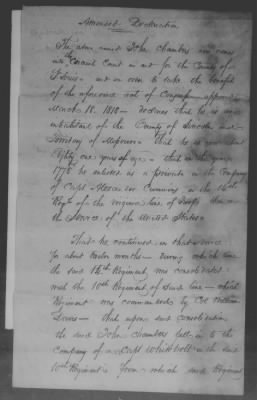 Amended Declaration
The above named John Chambers in case
the Circuit Court in and for the County of
in order to take the benefit
of the aforesaid act of Congress approved
March 18. 1818 — declares that he is an
inhabitant of the County of Lincoln and
Territory of Missouri — that he is now about
Eighty one years of age — that in the year
1776 he enlisted as a private in the Company
of Capt Alexander Cummins in the 14th
Regt of the Virginia line of troops then in
the Service of the United States —
That he continued in that service
for about twelve months — during which time
the said 14th Regiment, was consolidated
with the 10th Regiment of said line — which
Regiment was commanded by Col William
Davis — that upon such consolidation
the said John Chambers fell in to the
Company of Capt in the said
10th Regiment — from which said Regiment